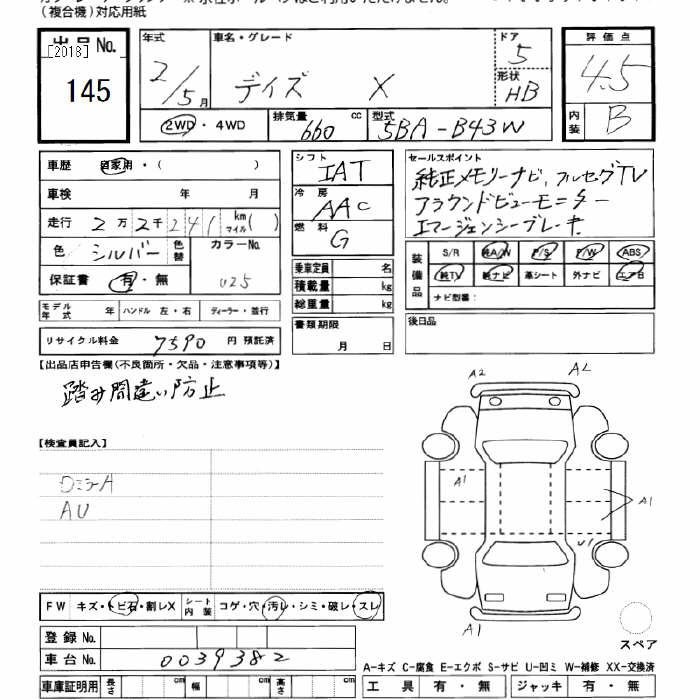 (複合機)対応用紙
出品 No.
[2018]
145
年式
2/5月
車名・グレード
デイズ X
ドア
5
形状
HB
評価点
4.5
内装
B
2WD・4WD
排気量
660 cc
型式
5BA-B43W
車歴 自家用・( )
車検 年 月
走行 2万2千241 km マイル( )
色 シルバー 色替
カラーNo.
U25
保証書 有・無
モデル年式 年 ハンドル 左・右 ディーラー・並行
リサイクル料金 7590 円 預託済
シフト
IAT
冷房
AAC
燃料
G
乗車定員 名
積載量 kg
総重量 kg
書類期限
月 日
セールスポイント
純正メモリーナビ、フルセグTV
アラウンドビューモニター
エマージェンシーブレーキ
装備品
S/R 純A/W P/S P/W ABS
純TV 純ナビ 革シート 外ナビ エアB
ナビ型番:
後日品
【出品店申告欄(不良箇所・欠品・注意事項等)】
踏み間違い防止
【検査員記入】
ロミラーA
AU
A2
A2
A1
A1
U1
A1
スペア
FW キズ・トビ石・割レX シート内装 コゲ・穴・汚レ・シミ・破レ・スレ
登録 No.
車台 No. 0039382
車庫証明用 長さ cm 幅 cm 高さ cm
A-キズ C-腐食 E-エクボ S-サビ U-凹ミ W-補修 XX-交換済
工具 有・無 ジャッキ 有・無